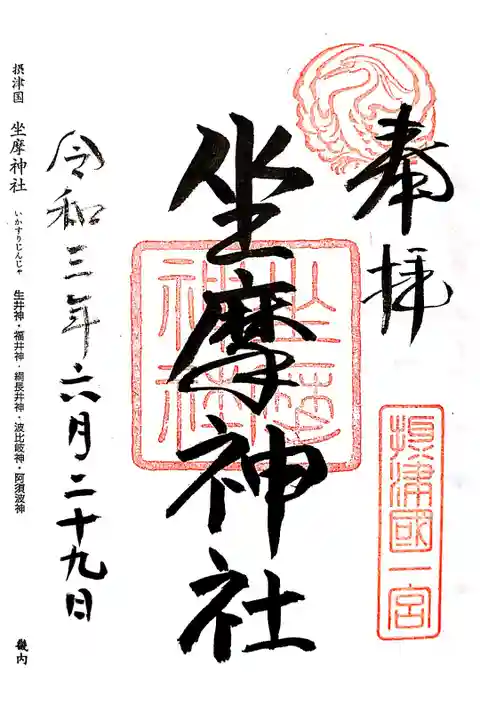 奉拝
攝津國一宮
坐摩神社
坐摩神社
令和三年六月二十九日
摂津国 坐摩神社 いかすりじんじゃ 生井神・福井神・綱長井神・波比岐神・阿須波神 畿内